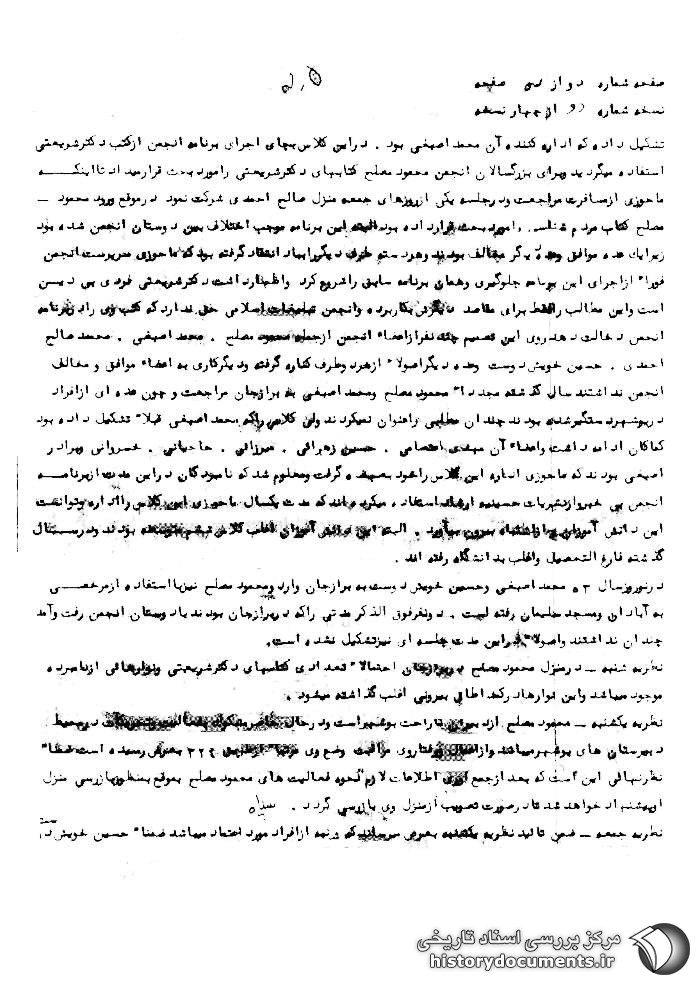 صفحه شماره دو از سی صفحه
نسخه شماره دو از چهار نسخه
تشکیل داده که اداره کننده آن محمد اصیفی بود . در این کلاس بجای اجرای برنامه انجمن از کتب دکتر شریعتی
استفاده میگردید و برای بزرگسالان انجمن محمود مصلح کتابهای دکتر شریعتی را مورد بحث قرار میداد تا اینکه
ماحوزی از مسافرت مراجعت و در جلسه یکی از روزهای جمعه منزل صالح احمدی شرکت نمود در موقع ورود محمود -
مصلح کتاب مردم شناسی را مورد بحث قرار داده بود البته این برنامه موجب اختلاف بین دوستان انجمن شده بود
زیرا یک عده موافق وعده دیگر مخالف بودند و هر دسته طرف دیگر را بباد انتقاد گرفته بود که ماحوزی سرپرست انجمن
فورا" از اجرای این برنامه جلوگیری و همان برنامه سابق را شروع کرد و اظهار داشت دکتر شریعتی فردی بی دین
است و این مطالب را فقط برای مقاصد دیگری بکار برده و انجمن تبلیغات اسلامی حق ندارد که کتب وی را در برنامه
انجمن دخالت دهد روی این تصمیم چند نفر از اعضاء انجمن از جمله محمود مصلح . محمد اصیفی . محمد صالح
احمدی . حسین خویش دوست وعده دیگر اصولا" از هر دو طرف کناره گرفته و دیگر کاری به اعضاء موافق و مخالف
انجمن نداشتند سال گذشته مجددا" محمود مصلح و محمد اصیفی به برازجان مراجعت و چون عده ای از افراد
در بوشهر دستگیر شده بودند چندان مطلبی را عنوان نمیکردند ولی کلاس را که محمد اصیفی قبلا" تشکیل داده بود
کماکان ادامه داشت و اعضاء آن مهدی اعتصامی . حسین زهرائی . میرزائی . حاجیانی . خسروانی و برادر
اصیفی بودند که ماحوزی اداره این کلاس را خود بعهده گرفت و معلوم شد که نامبردگان در این مدت از برنامه
انجمن بی خبر و از نشریات حسینیه ارشاد استفاده میکرده اند که مدت یکسال ماحوزی این کلاس را اداره و توانست
این دانش آموزان را از اشتباه بیرون بیاورد . البته این دانش آموزان اغلب کلاس ششم متوسطه بودند و در سال
گذشته فارغ التحصیل و اغلب به دانشگاه رفته اند .
در نوروز سال ۵۳ محمد اصیفی و حسین خویش دوست به برازجان وارد و محمود مصلح نیز با استفاده از مرخصی
به آبادان و مسجد سلیمان رفته است . دو نفر فوق الذکر مدتی را که در برازجان بودند با دوستان انجمن رفت وآمد
چندان نداشتند و اصولا" در این مدت جلسه ای نیز تشکیل نشده است.
نظریه شنبه - در منزل محمود مصلح در برازجان احتمالا" تعدادی کتابهای دکتر شریعتی و نوارهائی از نامبرده
موجود میباشد و این نوارها در کمد اطاق بیرونی اغلب گذاشته میشود .
نظریه یکشنبه - محمود مصلح از دبیران ناراحت بوشهر است و در حال حاضر در محیط
دبیرستان های بوشهر میباشد و از اعمال و رفتار وی مراقبت و وضع وی مرتبا" بعرض رسیده است ضمنا"
نظر نهائی این است که بعد از جمع آوری اطلاعات لازم از نحوه فعالیت های محمود مصلح بموقع بمنظور بازرسی منزل
او پیشنهاد خواهد شد تا در صورت تصویب از منزل وی بازرسی گردد .
نظریه جمعه - ضمن تائید نظریه یکشنبه بعرض میرساند که شنبه از افراد مورد اعتماد میباشد ضمنا" حسین خویش
مرکز بررسی اسناد تاریخی
historydocuments.ir